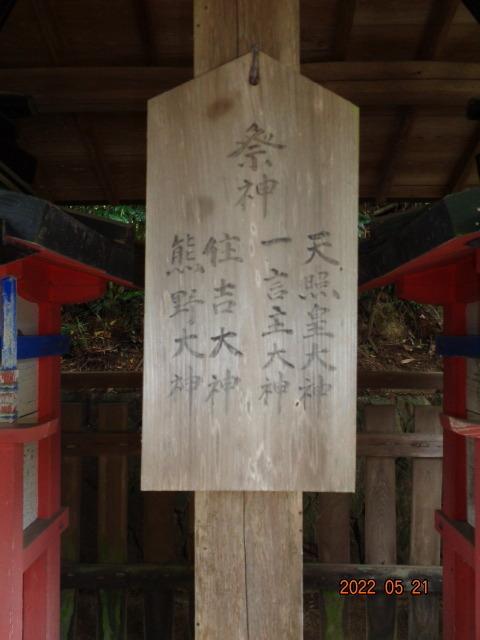 祭神
天照皇大神
一言主大神
住吉大神
熊野大神
2022 05 21